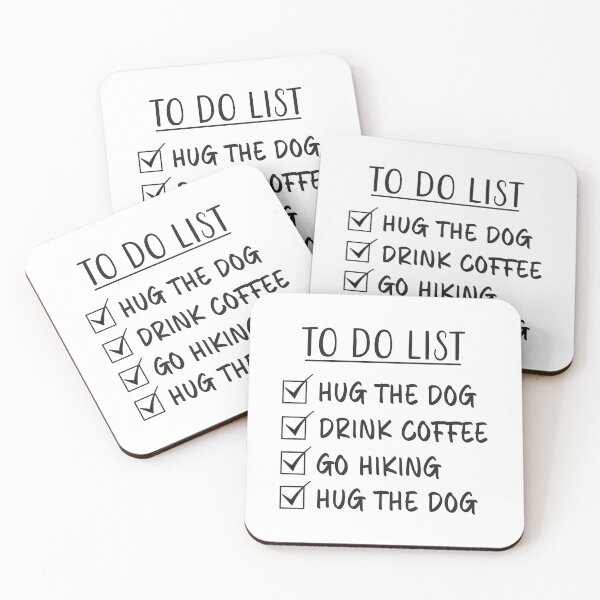 TO DO LIST
HUG THE DOG
TO DO LIST
HUG THE DOG
DRINK COFFEE
GO HIKING
TO DO LIST
HUG THE DOG
DRINK COFFEE
GO HIKING
HUG THE
TO DO LIST
HUG THE DOG
DRINK COFFEE
GO HIKING
HUG THE DOG